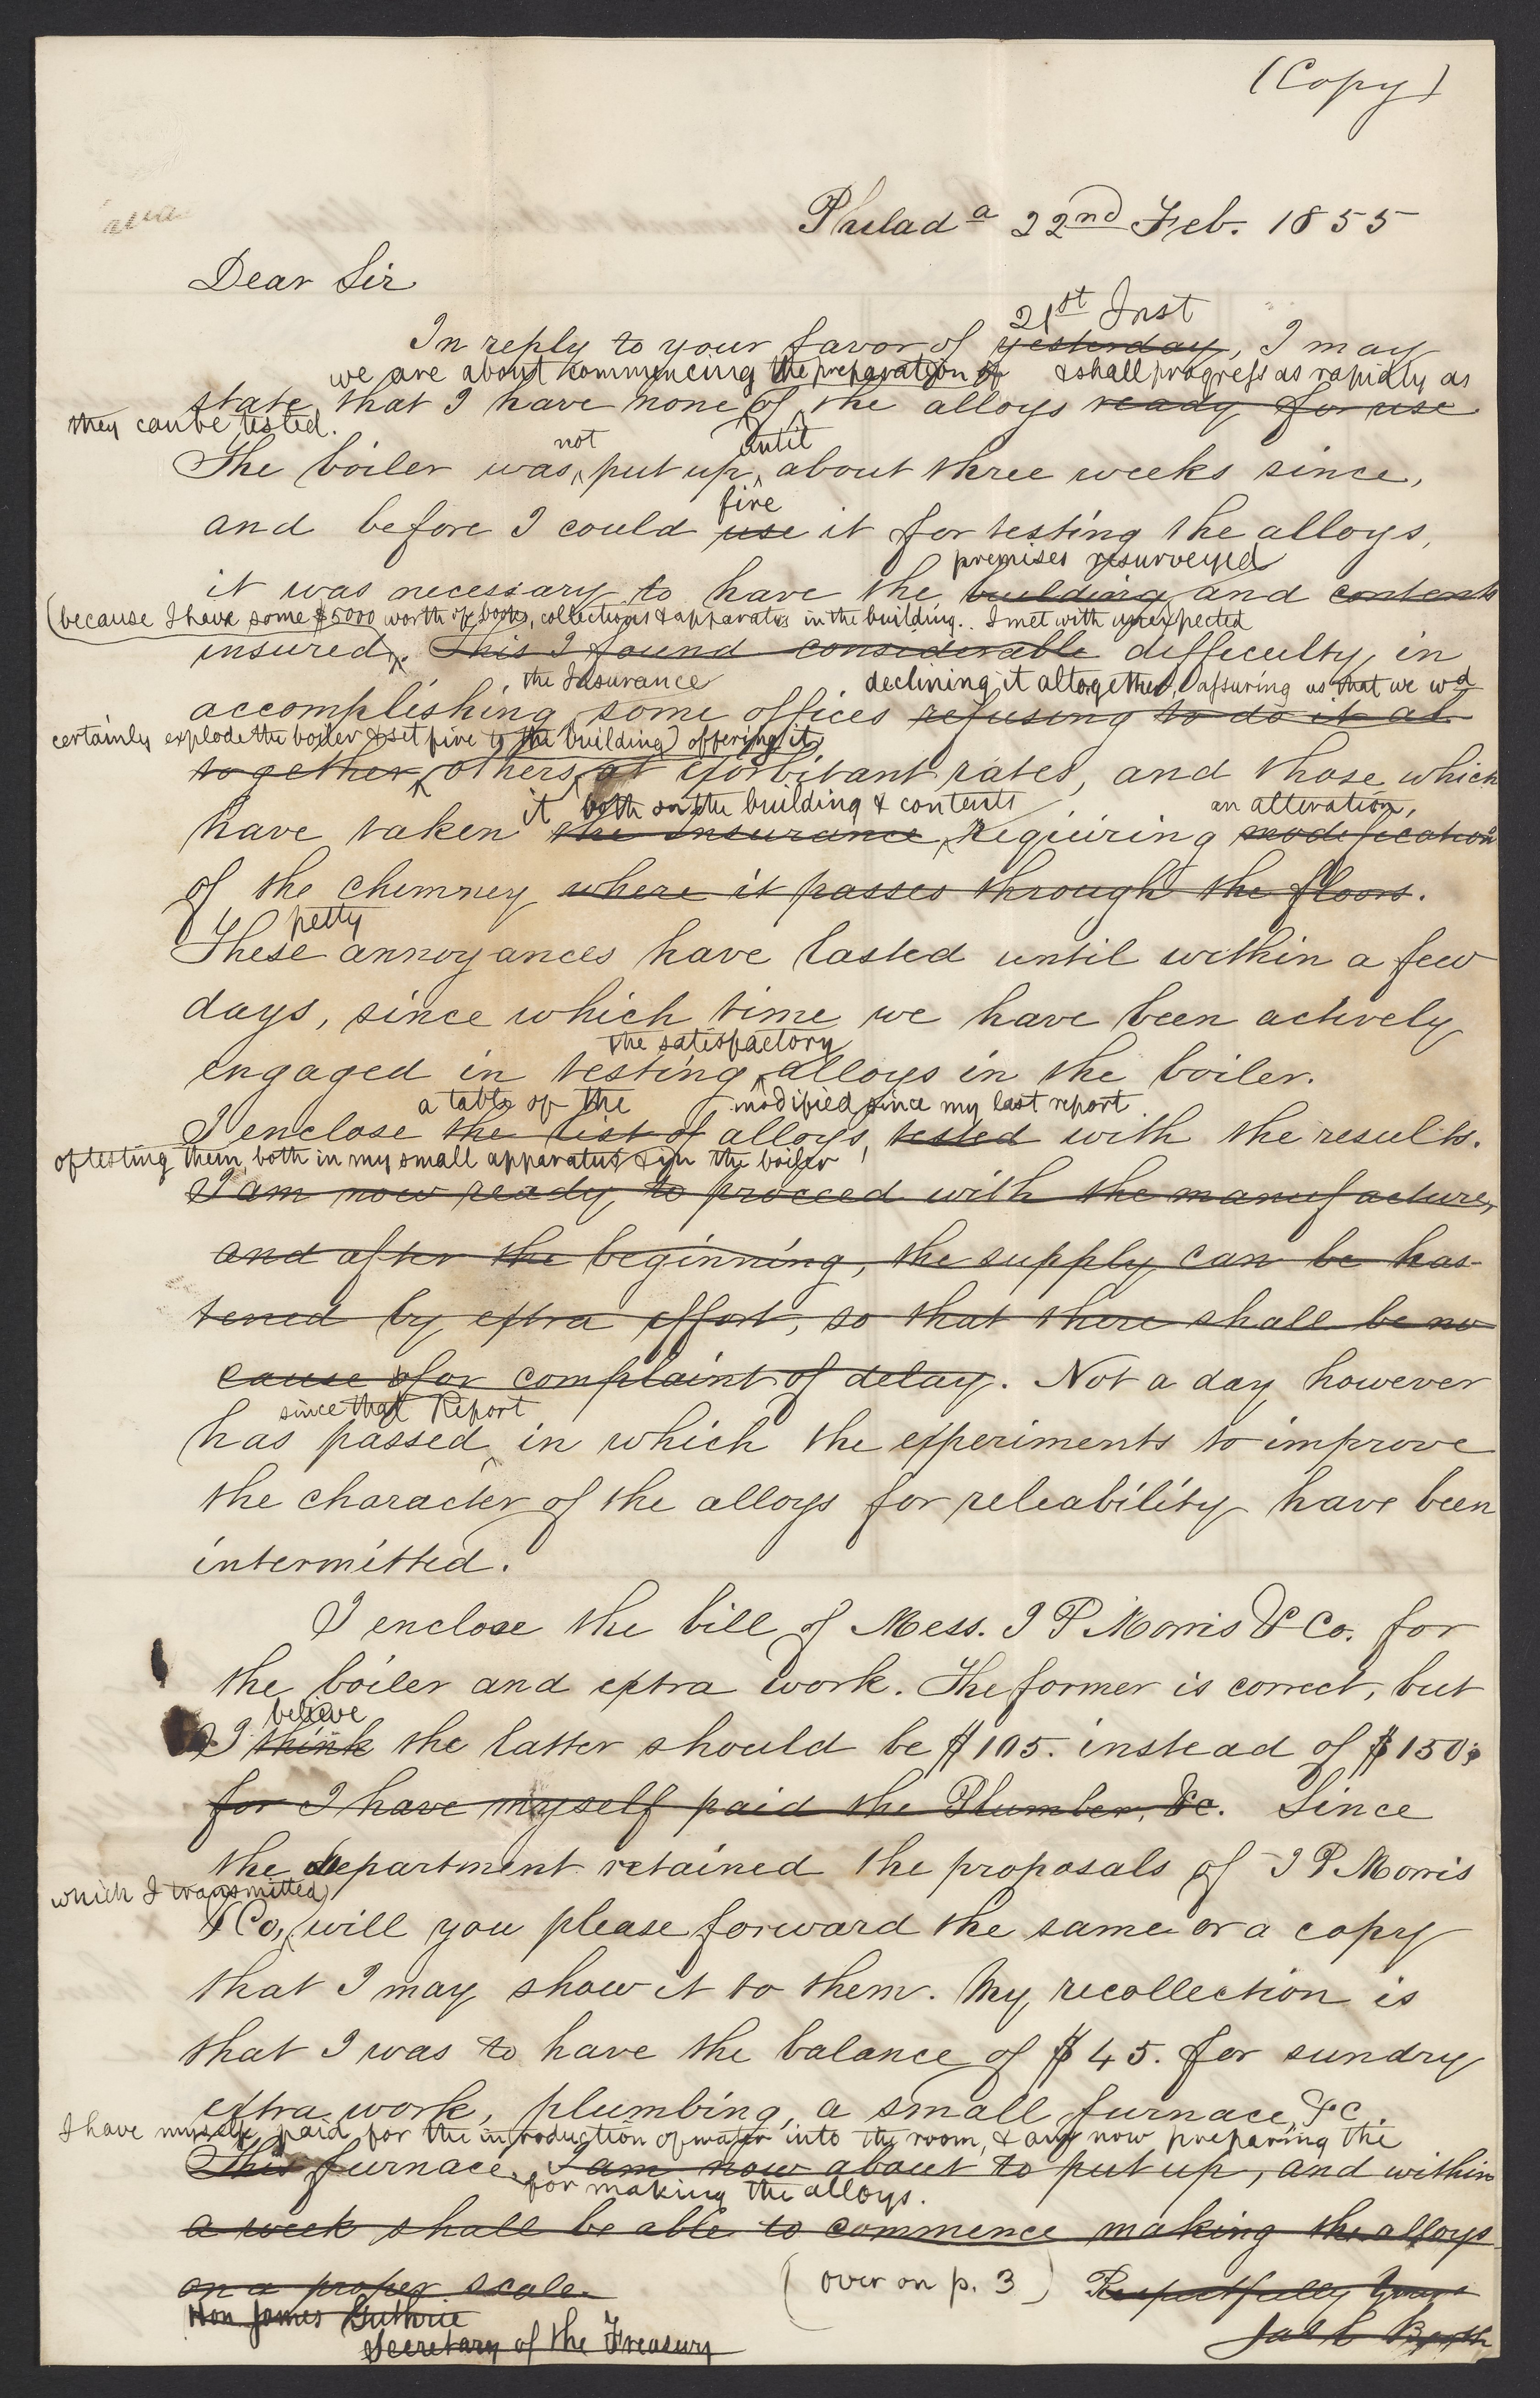 (Copy)
Philad a 22nd Feb. 1855
Dear Sir
21st Inst
In reply to your favor of yesterday, I may
we are about commencing the preparation of & shall progress as rapidly as
state that I have none of the alloys ready for use
they can be tested.
not until
The boiler was put up about three weeks since,
fire
and before I could use it for testing the alloys,
premises resurveyed
it was necessary to have the building and contents
(because I have some $5000 worth of books, collections & apparatus in the building. I met with unexpected
insured. This I found considerable difficulty in
the Insurance declining it altogether, (assuring us that we wd
accomplishing some offices refusing to do it al
certainly explode the boiler & set fire to the building) offering it
together, others at exorbitant rates, and those which
it both on the building & contents an alteration,
have taken the insurance, requiring modification
of the chimney where it passes through the floors.
petty
These annoyances have lasted until within a few
days, since which time we have been actively
the satisfactory
engaged in testing alloys in the boiler.
a table of the modified since my last report
I enclose the list of alloys, tested with the results.
of testing them both in my small apparatus & in the boiler
I am now ready to proceed with the manufacture,
and after the beginning, the supply can be has-
tened by extra effort, so that there shall be no
cause for complaint of delay. Not a day however
since that Report
has passed in which the experiments to improve
the character of the alloys for reliability have been
intermitted.
I enclose the bill of Mess. I P Morris & Co. for
the boiler and extra work. The former is correct, but
believe
I think the latter should be $105. instead of $150;
for I have myself paid the Plumber, &c. Since
the department retained the proposals of I P Morris
which I transmitted
& Co, will you please forward the same or a copy
that I may show it to them. My recollection is
that I was to have the balance of $45. for sundry
extra work, plumbing, a small furnace, &c.
I have myself paid for the introduction of water into the room, & am now preparing the
This furnace. I am now about to put up, and within
for making the alloys.
a week shall be able to commence making the alloys
on a proper scale.
(over on p. 3) Respectfully Yours
Hon James Guthrie
Secretary of the Treasury